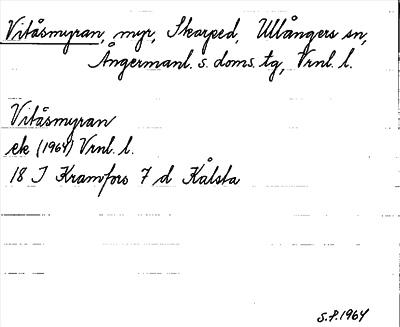 Vitåsmyran, myr, Skorped, Ullångers sn,
Ångermanl. s. doms. tg, Vrnl. l.
Vitåsmyran
ek (1964) Vrnl. l.
18 I Kramfors 7 d Kålsta
S.P. 1964